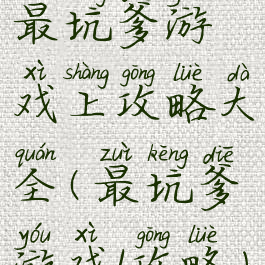 最坑爹游
xì shàng gōng lüè dà
戏上攻略大
quán zuì kēng diē
全(最坑爹
yóu xì gōng lüè
游戏(攻略)